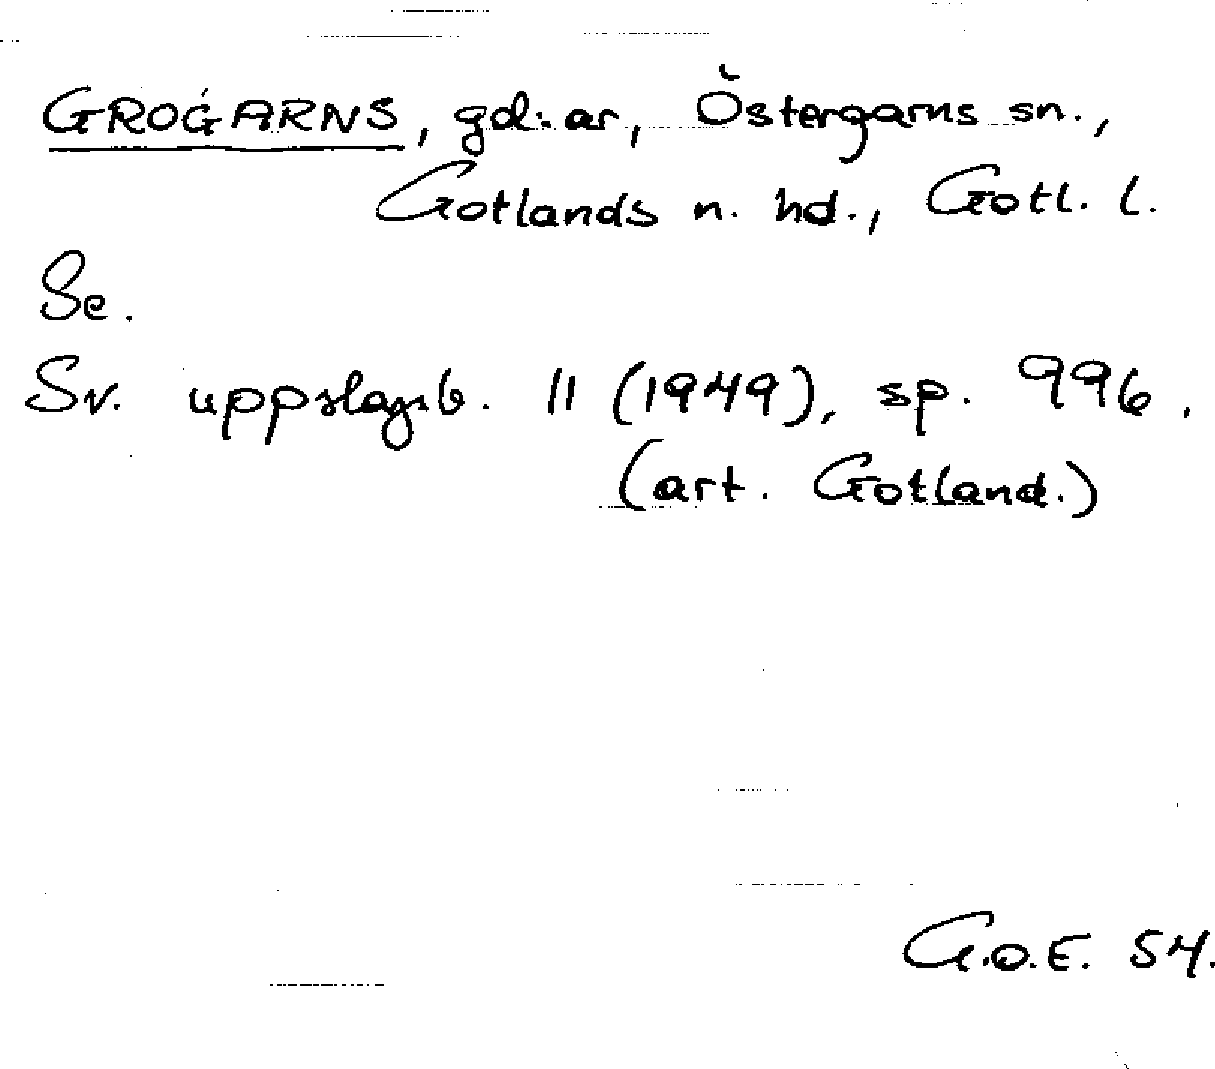 GROGARNS, gd:ar, Östergarns sn.,
Gotlands n. hd., Gotl. l.
Se.
Sv. uppslagsb. 11 (1949), sp. 996.
(art. Gotland.)
G.O.E. 54.